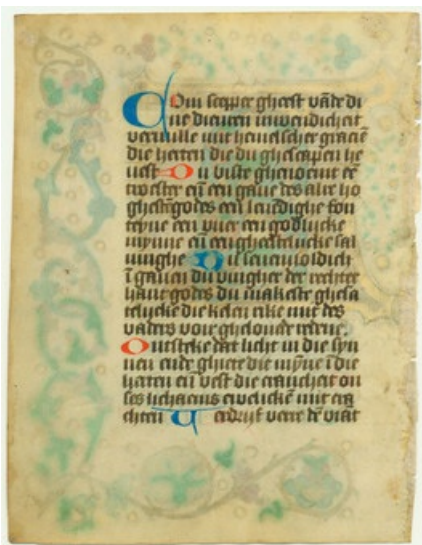 Com scepper gheest vāde di
ne dienren inwendicheit
vervulle mit hemelscher graciē
die herten die du ghescapen he
uest Du biste ghenoemt eē
troester eñ een gaue des alre ho
ghesten godes een leuendighe fon
teyne een vuer een godlijcke
mynne eñ een gheestelijcke sal
uinghe Du seuenvoldich
ī gauen du vingher der rechter
hant godes du makeste ghesa
telijcke die kelen rike mit des
vaders voir gheloefde redene.
Ontsteke dat licht in die syn
nen ende ghiete die mȳne ī die
herten eñ vest die crancheit on
ses lichaems ewelickē mit cra
chten Verdrijf verre dē viant